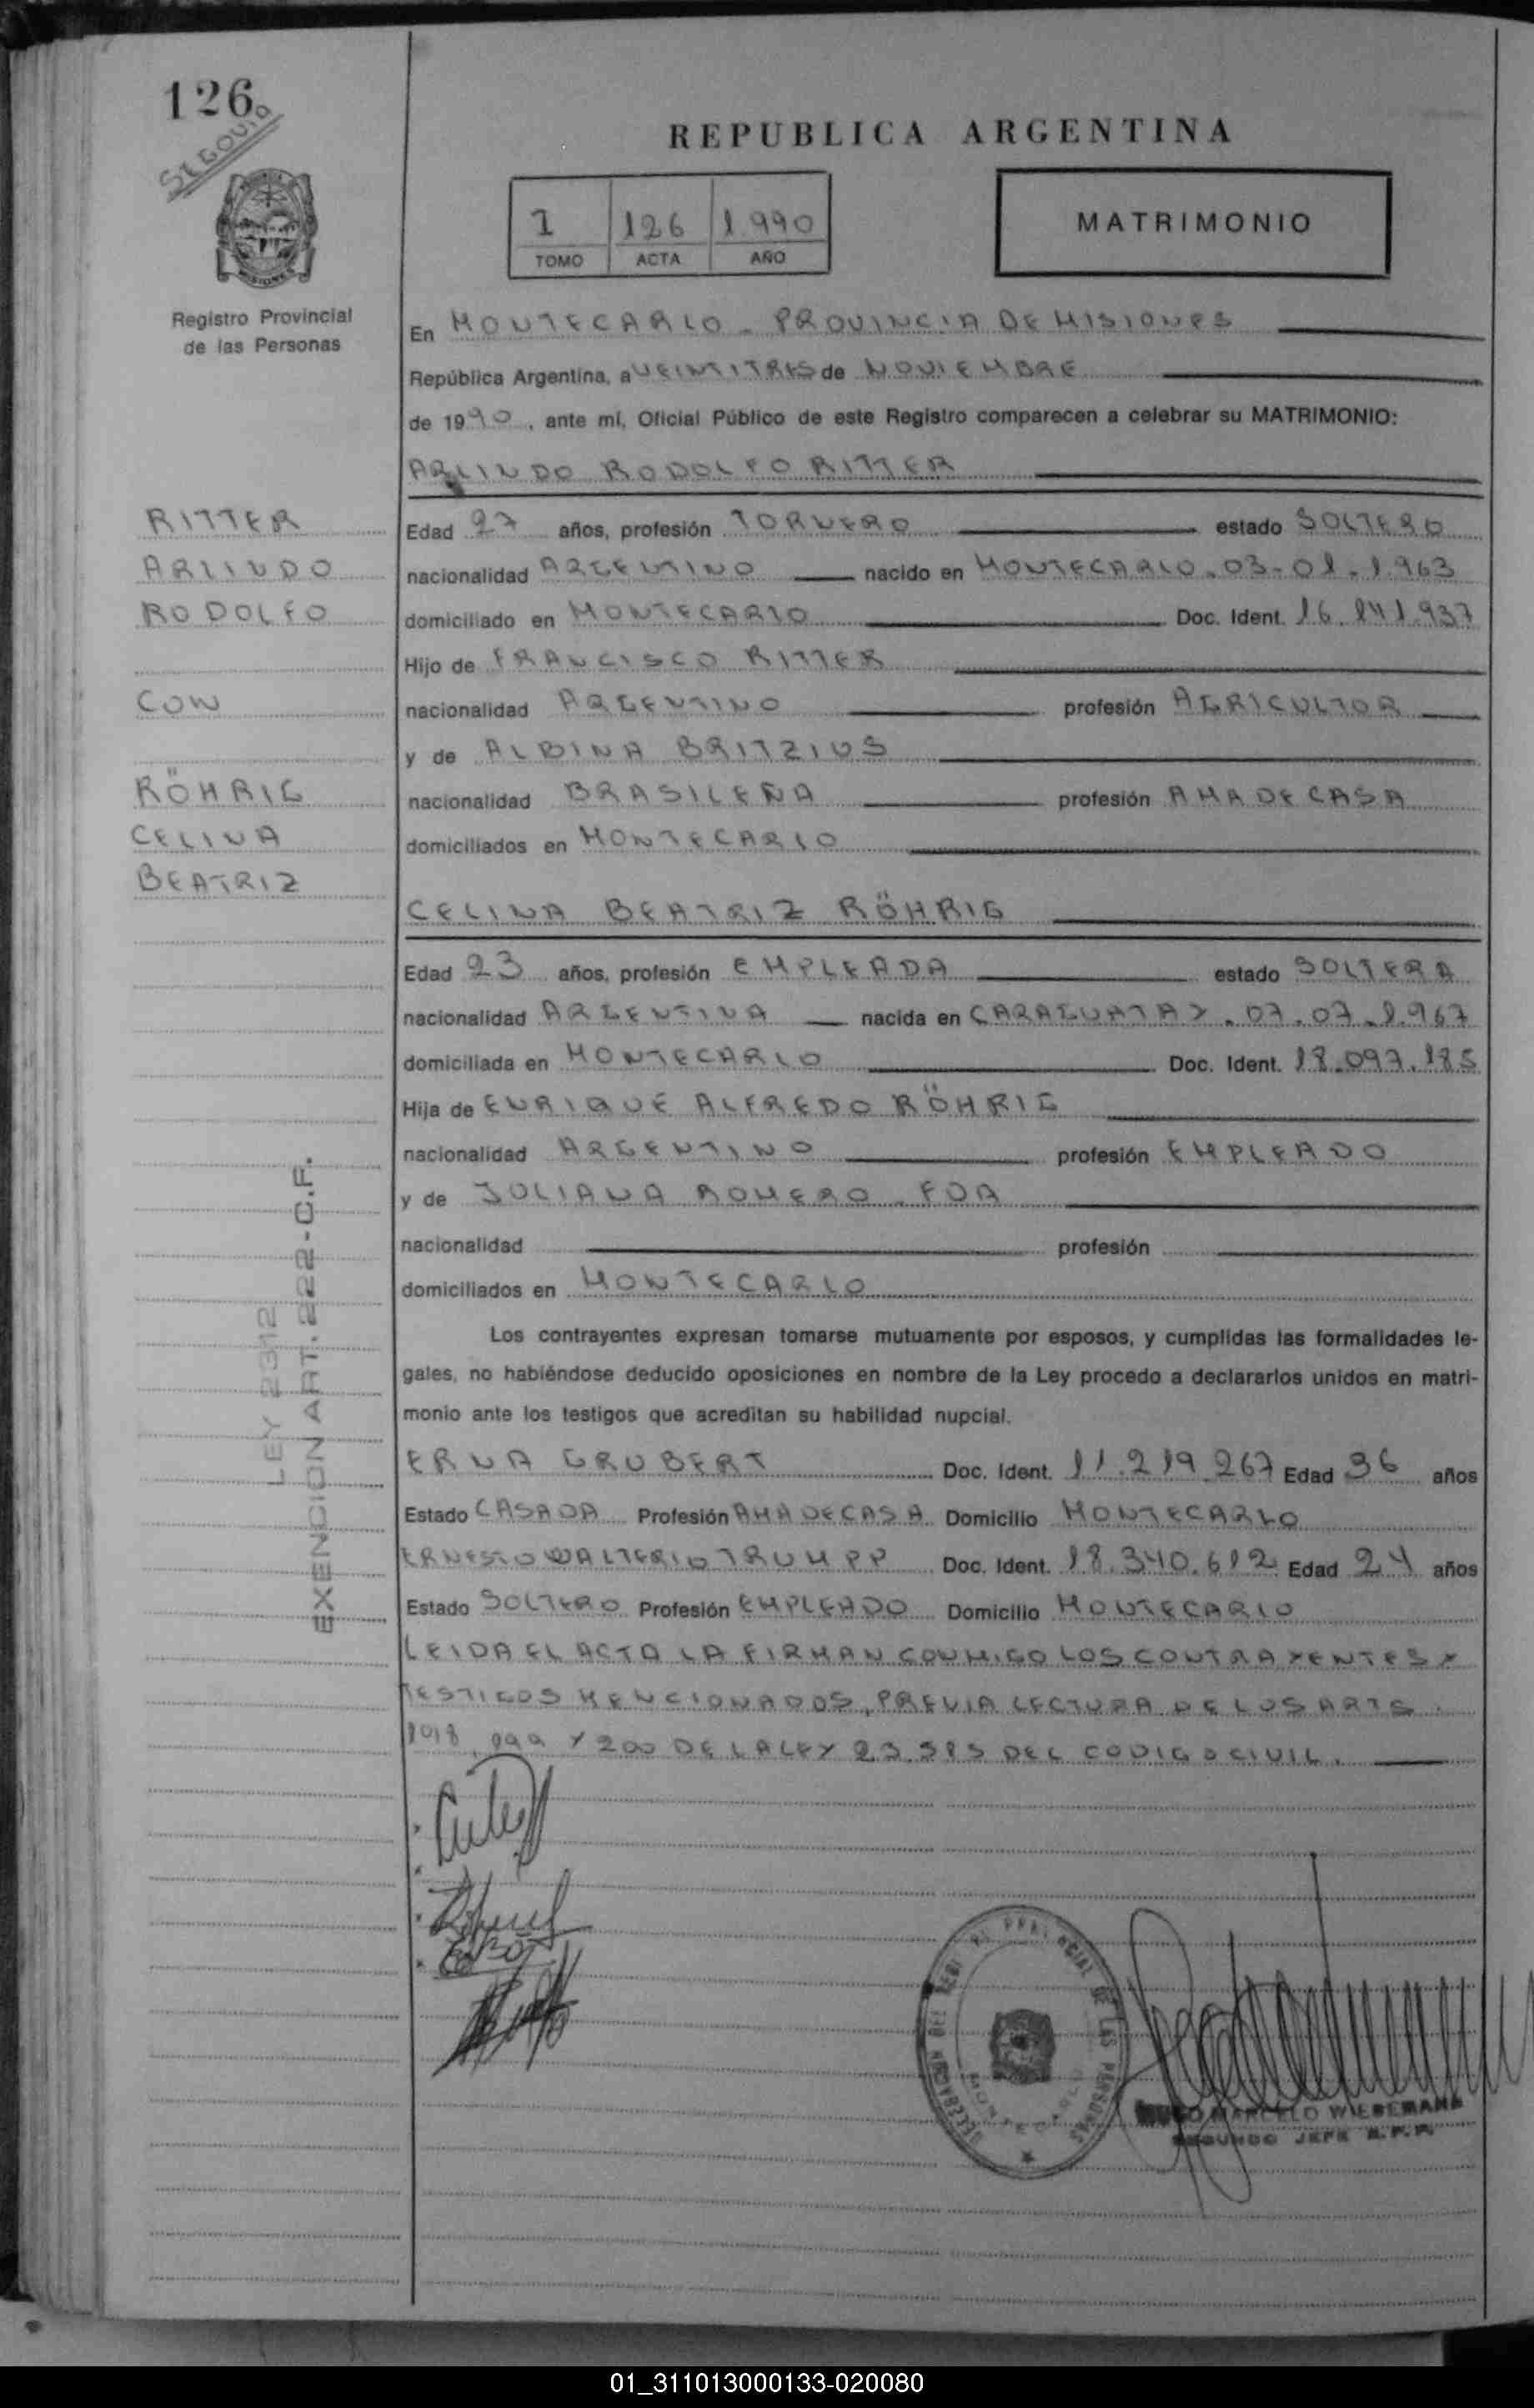 126
SEGOVIA
REPUBLICA ARGENTINA
I 126 1.990
TOMO ACTA AÑO
MATRIMONIO
MISIONES
Registro Provincial
de las Personas
En MONTECARLO - PROVINCIA DE MISIONES
República Argentina, a VEINTITRES de NOVIEMBRE
de 1990, ante mí, Oficial Público de este Registro comparecen a celebrar su MATRIMONIO:
ARLINDO RODOLFO RITTER
RITTER
ARLINDO
RODOLFO
CON
RÖHRIG
CELINA
BEATRIZ
Edad 27 años, profesión TORNERO estado SOLTERO
nacionalidad ARGENTINO nacido en MONTECARLO. 03-01-1.963
domiciliado en MONTECARLO Doc. Ident. 16.141.937
Hijo de FRANCISCO RITTER
nacionalidad ARGENTINO profesión AGRICULTOR
y de ALBINA BRITZIUS
nacionalidad BRASILEÑA profesión AMA DE CASA
domiciliados en MONTECARLO
CELINA BEATRIZ RÖHRIG
Edad 23 años, profesión EMPLEADA estado SOLTERA
nacionalidad ARGENTINA nacida en CARAGUATAY. 07.07.1.967
domiciliada en MONTECARLO Doc. Ident. 18.097.185
Hija de ENRIQUE ALFREDO RÖHRIG
nacionalidad ARGENTINO profesión EMPLEADO
y de JULIANA ROMERO - FDA
nacionalidad profesión
domiciliados en MONTECARLO
LEY 2312
EXENCION ART. 222-C.F.
Los contrayentes expresan tomarse mutuamente por esposos, y cumplidas las formalidades le-
gales, no habiéndose deducido oposiciones en nombre de la Ley procedo a declararlos unidos en matri-
monio ante los testigos que acreditan su habilidad nupcial.
ERNA GRUBERT Doc. Ident. 11.219.267 Edad 36 años
Estado CASADA Profesión AMA DE CASA Domicilio MONTECARLO
ERNESTO WALTERIO TRUMPP Doc. Ident. 18.340.612 Edad 24 años
Estado SOLTERO Profesión EMPLEADO Domicilio MONTECARLO
LEIDA EL ACTA LA FIRMAN CONMIGO LOS CONTRAYENTES Y
TESTIGOS MENCIONADOS, PREVIA LECTURA DE LOS ARTS.
198, 199 Y 200 DE LA LEY 23.515 DEL CODIGO CIVIL.
PROVINCIAL DE LAS PERSONAS
MONTECARLO
MARCELO WIEDEMANN
SEGUNDO JEFE R.P.P.
01_311013000133-020080